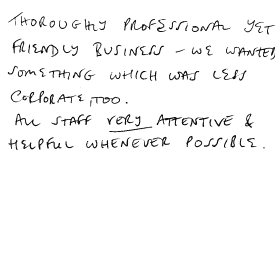 THOROUGHLY PROFESSIONAL YET
FRIENDLY BUSINESS - WE WANTED
SOMETHING WHICH WAS LESS
CORPORATE, TOO.
ALL STAFF VERY ATTENTIVE &
HELPFUL WHENEVER POSSIBLE.